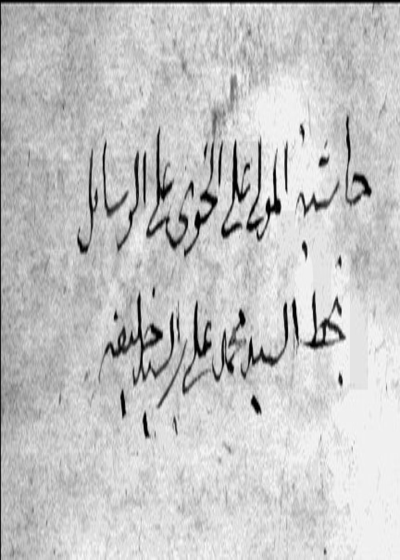 حاشية المولى علي الخوئي على الرسائل
بخط السيد محمد علي بن السيد خليفه